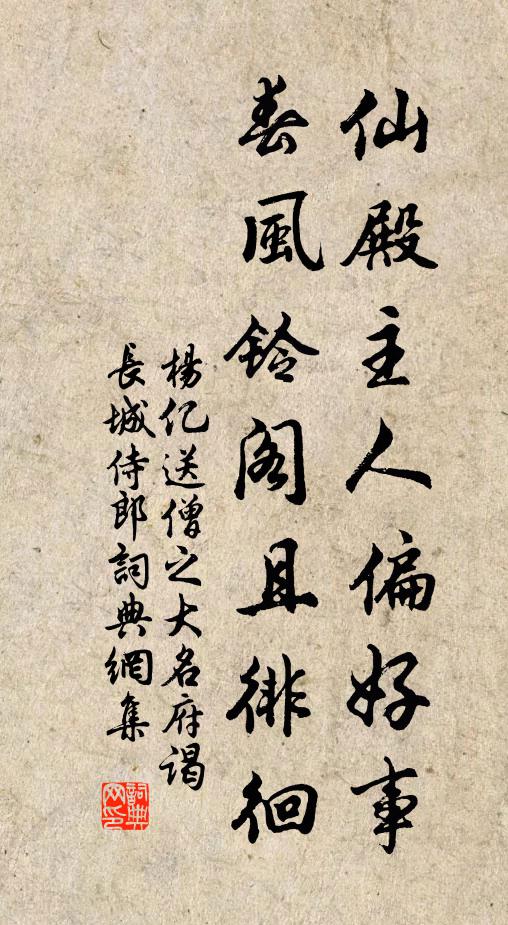 仙殿主人偏好事
春風鈴阁且徘徊
楊亿送僧之大名府谒
長城侍郎詞典網集
詞典
网印